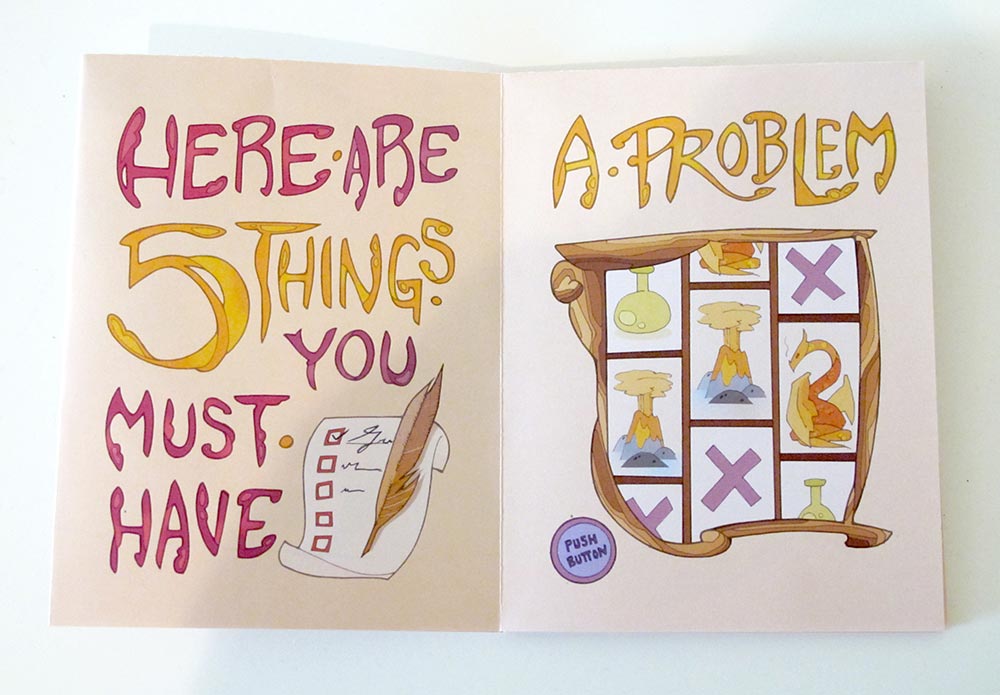 HERE·ARE
5 THINGS
YOU
MUST·
HAVE
A·PROBLEM
PUSH
BUTTON